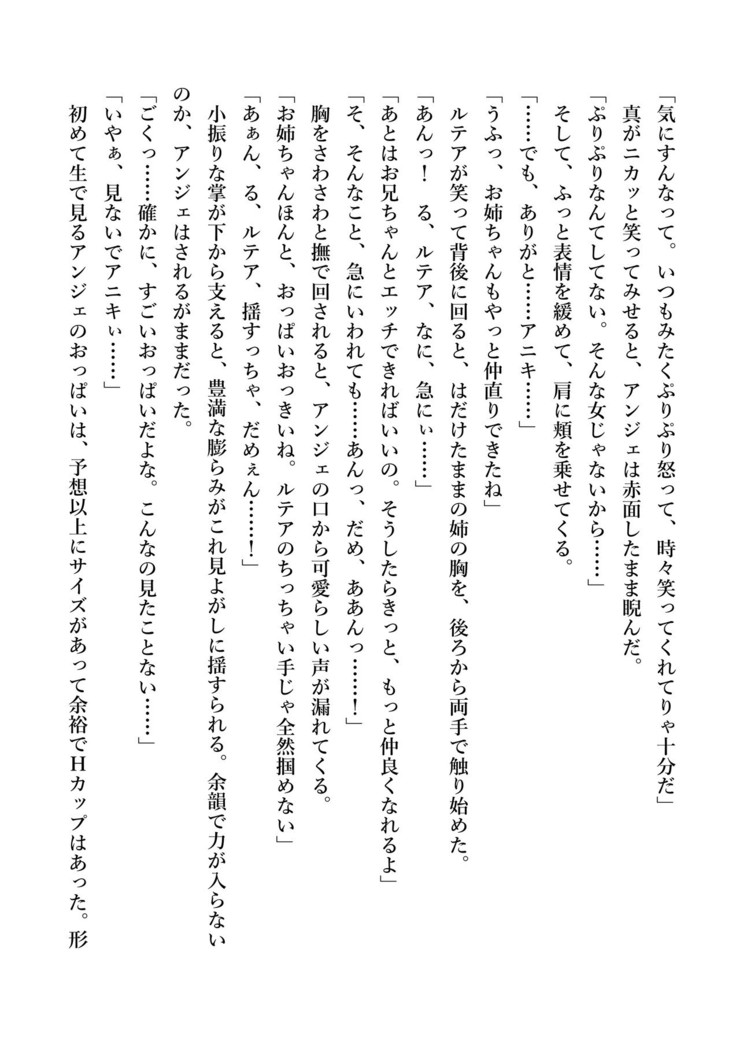 「気にすんなって。いつもみたくぷりぷり怒って、時々笑ってくれてりゃ十分だ」
真がニカッと笑ってみせると、アンジェは赤面したまま睨んだ。
「ぷりぷりなんてしてない。そんな女じゃないから……」
そして、ふっと表情を緩めて、肩に頬を乗せてくる。
「……でも、ありがと……アニキ……」
「うふっ、お姉ちゃんもやっと仲直りできたね」
ルテアが笑って背後に回ると、はだけたままの姉の胸を、後ろから両手で触り始めた。
「あんっ！　る、ルテア、なに、急にぃ……」
「あとはお兄ちゃんとエッチできればいいの。そうしたらきっと、もっと仲良くなれるよ」
「そ、そんなこと、急にいわれても……あんっ、だめ、ああんっ……！」
胸をさわさわと撫で回されると、アンジェの口から可愛らしい声が漏れてくる。
「お姉ちゃんほんと、おっぱいおっきいね。ルテアのちっちゃい手じゃ全然掴めない」
「あぁん、る、ルテア、揺すっちゃ、だめぇん……！」
小振りな掌が下から支えると、豊満な膨らみがこれ見よがしに揺すられる。余韻で力が入らない
のか、アンジェはされるがままだった。
「ごくっ……確かに、すごいおっぱいだよな。こんなの見たことない……」
「いやぁ、見ないでアニキぃ……」
初めて生で見るアンジェのおっぱいは、予想以上にサイズがあって余裕でＨカップはあった。形